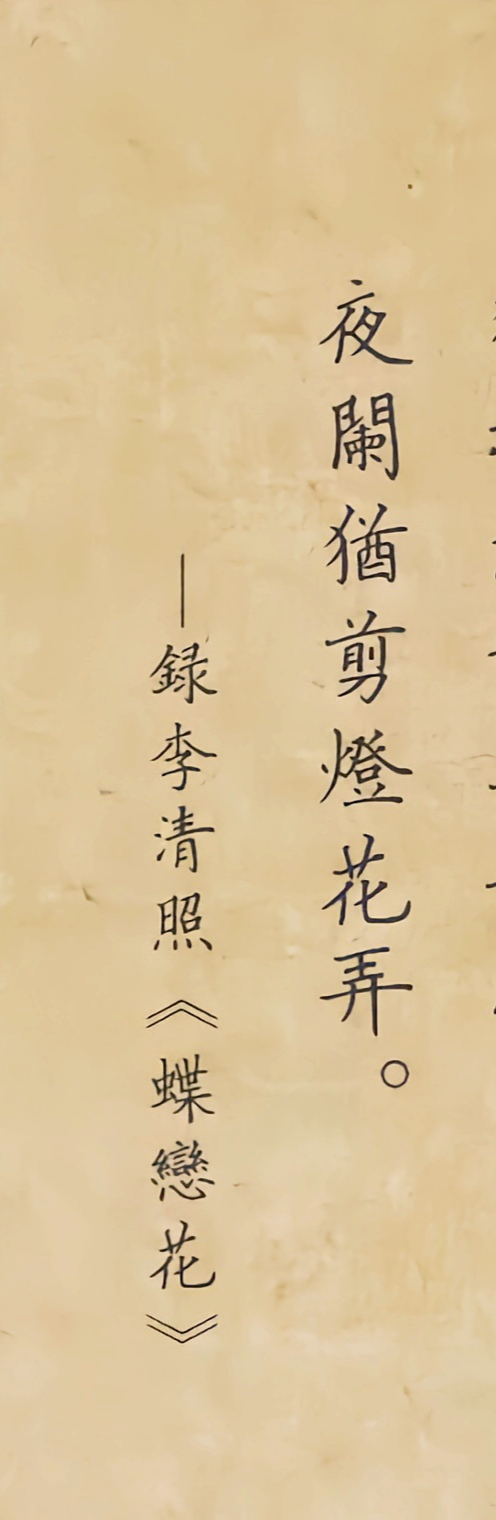 夜闌猶剪燈花弄。
—録李清照《蝶戀花》